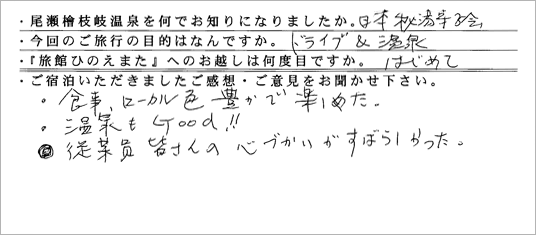 ・尾瀬檜枝岐温泉を何でお知りになりましたか。日本秘湯を守る会
・今回のご旅行の目的はなんですか。ドライブ & 温泉
・『旅館ひのえまた』へのお越しは何度目ですか。はじめて
・ご宿泊いただきましたご感想・ご意見をお聞かせ下さい。
・食事、ローカル色豊かで楽しめた。
・温泉も Good!!
◎従業員皆さんの心づかいがすばらしかった。